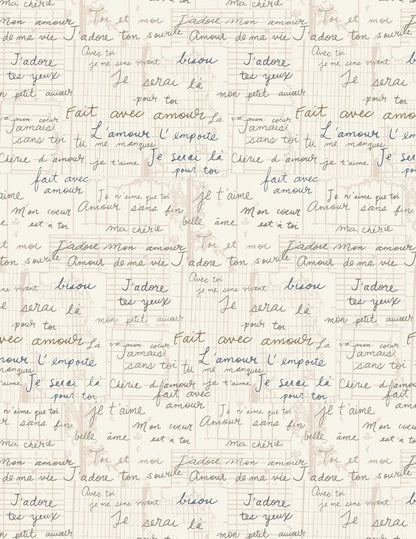 Toi et moi J'adore Mon amour
Amour de ma vie J'adore ton sourile Amour de ma vie J'adore ton
Avec toi
je me sens vivant bisou
J'adore
tes yeux
Je serai là
pour toi
mon petit amour
Fait avec amour La
va mon cœur
Jamais
sans toi
L'amour L'emporte
tu me manques
Chérie d'amour je t'aime Je serai là
pour toi
fait avec
amour
je t'aime
Je n'aime que toi
Mon cœur
est à toi
Amour sans fin
belle âme
ma chérie
Toi et moi J'adore Mon amour
ton sourile Amour de ma vie J'adore ton sourile Amour de ma vie
Avec toi
je me sens vivant
bisou J'adore bisou
tes yeux
Je serai là
pour toi
mon petit amour
avec amour La Fait avec amour
va mon cœur
Jamais
sans toi
L'amour L'emporte
tu me manques
je t'aime Je serai là
pour toi
Chérie d'amour je t'aime Je serai là
fait avec
amour
Je n'aime que toi je t'aime
Amour sans fin
belle âme
Mon cœur
est à toi
ma chérie
Mon amour Toi et moi J'adore Mon amour
Amour de ma vie J'adore ton sourile Amour de ma vie J'adore ton
Avec toi
je me sens vivant bisou
J'adore
tes yeux
Je serai là
mon petit amour